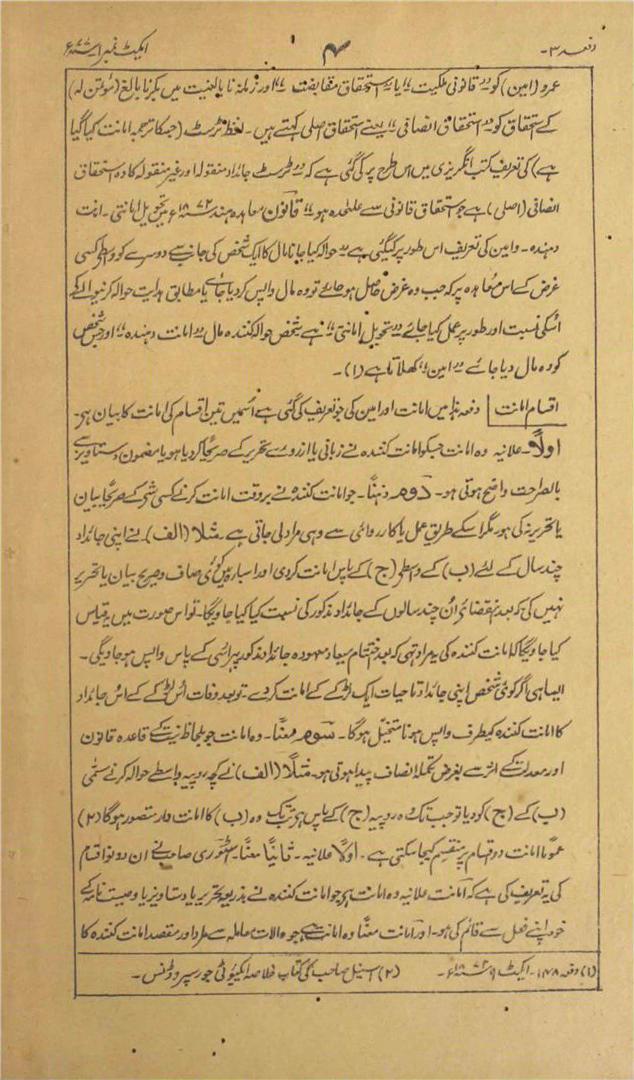 دفعہ ۳۔ ۴ ایکٹ نمبر ۱ ۱۸۷۷ء
عمرو (امین) کو ؍؍ قانونی ملکیت ؍؍ یا ؍؍ استحقاق مقابضت ؍؍ اور زمانہ نابالغیت میں بکر نابالغ (مؤتمن لہ)
کے استحقاق کو ؍؍ استحقاق انصافی ؍؍ یعنے استحقاق اصلی کہتے ہیں۔ لفظ ٹرسٹ (جسکا ترجمہ امانت کیا گیا
ہے) کی تعریف کتب انگریزی میں اس طرح پر کی گئی ہے کہ ؍؍ ٹرسٹ جائداد منقولہ اور غیر منقولہ کا وہ استحقاق
انصافی (اصلی) ہے جو استحقاق قانونی سے علٰحدہ ہو ؍؍ قانون معاہدہ ہند ۱۸۷۲ء میں تحویل امانتی۔ امانت
دہندہ۔ و امین کی تعریف اس طور پر کیگئی ہے ؍؍ حوالہ کیا جانا مال کا ایک شخص کی جانب سے دوسرے کو واسطے کسی
غرض کے اس معاہدہ پر کہ جب وہ غرض حاصل ہو جائے تو وہ مال واپس کر دیا جائے یا مطابق ہدایت حوالہ کرنیوالے کے
اُسکی نسبت اور طور پر عمل کیا جائے ؍؍ تحویل امانتی ؍؍ ہے شخص حوالہ کنندہ مال ؍؍ امانت دہندہ ؍؍ اور جس شخص
کو وہ مال دیا جائے ؍؍ امین ؍؍ کہلاتا ہے (۱)۔
اقسام امانت دفعہ ہٰذا میں امانت اور امین کی جو تعریف کی گئی ہے اُسمیں تین اقسام کی امانت کا بیان ہے۔
اولاً۔ علانیہ وہ امانت جسکو امانت کنندہ نے زبانی یا ازروے تحریر کے صریحاً کر دیا ہو یا مضمون دستاویز سے
بالصراحت واضح ہوتی ہو۔ دوم ذہناً۔ جو امانت کنندہ نے بروقت امانت کرنے کسی شے کے صریحاً بیان
یا تحریر نہ کی ہو۔ مگر اسکے طریق عمل یا کارروائی سے وہی مراد لی جاتی ہے۔ مثلاً (الف) نے اپنی جائداد
چند سال کے لئے (ب) کے واسطے (ج) کے پاس امانت کر دی اور اسبارہ میں کوئی صاف و صریح بیان یا تحریر
نہیں کی کہ بعد انقضائے اُن چند سالوں کے جائداد مذکور کی نسبت کیا کیا جاویگا۔ تو اس صورت میں یہ قیاس
کیا جاویگا کہ امانت کنندہ کی یہ مراد تہی کہ بعد اختتام میعاد معہودہ جائداد مذکور پہر اسی کے پاس واپس ہو جاویگی۔
ایسا ہی اگر کوئی شخص اپنی جائداد تا حیات ایک لڑکے کے امانت کردے۔ تو بعد وفات اُس لڑکے کے اُس جائداد
کا امانت کنندہ کیطرف واپس ہونا متخیل ہوگا۔ سوم معناً۔ وہ امانت جو بلحاظ نیت کے قاعدہ قانون
اور معدلت کے اثر سے بغرض تکملہ انصاف پیدا ہوتی ہو۔ مثلاً (الف) نے کچہ روپیہ واسطے حوالہ کرنے مسمی
(ب) کے (ج) کو دیا تو جب تک وہ روپیہ (ج) کے پاس رہے تب تک وہ (ب) کا امانت دار متصور ہوگا (۲)
عموماً امانت دو اقسام پر منقسم کیجا سکتی ہے۔ اولاً علانیہ۔ ثانیاً معناً۔ سٹوری صاحب نے ان دونو اقسام
کی یہ تعریف کی ہے کہ امانت علانیہ وہ امانت ہے جو امانت کنندہ نے بذریعہ تحریر یا دستاویز یا وصیت نامہ کے
خود اپنے فعل سے قائم کی ہو۔ اور امانت معناً وہ امانت ہے جو حالات معاملہ سے مراد اور مقصد امانت کنندہ کا
(۱) دفعہ ۱۴۸۔ ایکٹ ۹ ۱۸۷۲ء۔ (۲) اسنیل صاحب کی کتاب خلاصہ ایکیوٹی جورسپروڈنس۔